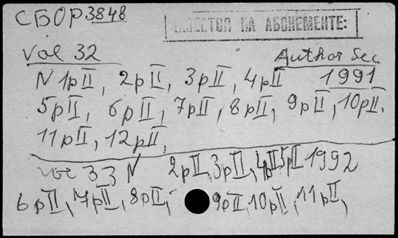 СБОР 3848
ИМЕЕТСЯ НА АБОНЕМЕНТЕ:
Vol 32 Author Sec
N 1pII, 2pII, 3pII, 4pII 1991
5pII, 6pII, 7pII, 8pII, 9pII, 10pII.
11pII, 12pII,
Vol 33 N 2pII, 3pII, 4pII 5pII 1992
6pII, 7pII, 8pII, 9pII, 10pII, 11pII,